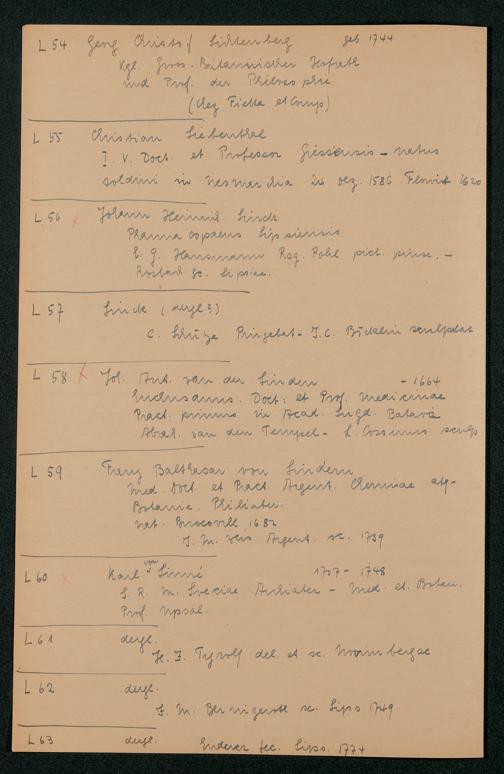 L 54 Georg Christof Lichtenberg geb 1744
Kgl. Gross-Britannischer Hofrath
und Prof. der Philosophie
L 55 Christian Liebenthal
I. V. Doct. et Professor Giessensis - natus
Soldini in 24 Dez. 1586. Floruit 1620
L 56 x Johann Heinrich Linck
Pharmacopaeus Lipsiensis
E. G. Hausmann Reg. Pohl pict. pinx. -
sc. Lipsiae.
L 57 Linck (dergl?)
C. Schütze Pingebat - J.C. sculpebat
L 58 x Joh. Ant. van der Linden - 1664
Enchusanus. Doct: et Prof. Medicinae
Pract. primus in Acad. Lugd. Batava
Abrah. van den Tempel - L. Cossinus sculp
L 59 Franz Balthasar von Lindern
Med. Doct. et Pract. Argent. Chemiae atq-
Botanic. Philiater.
nat. 1682
J. M. Weis Argent. sc. 1739
L 60 x Karl von Linné 1707 - 1748
S. R. M. Sveciae Archiater - Med. et. Botan.
Prof. Upsal.
L 61 dergl.
Tyroff del. et sc. Norimbergae
L 62 dergl.
J. M. Bernigeroth sc. Lips 1749
L 63 dergl. Enderer fec. Lips. 1774